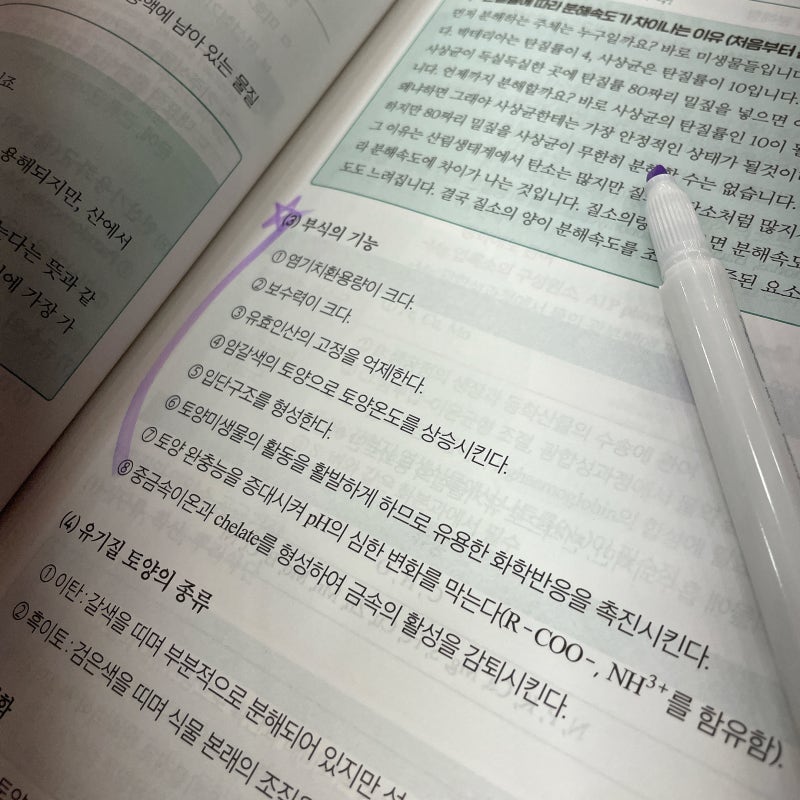 중액에 남아 있는 물질
용해되지만, 산에서
는다는 뜻과 같
에 가장 가
따라 분해속도가 차이나는 이유 (처음부터
먼저 분해하는 주체는 누구일까요? 바로 미생물들입니다
다. 박테리아는 탄질률이 4, 사상균은 탄질률이 10입니다.
사상균이 득실득실한 곳에 탄질률 80짜리 밀짚을 넣으면
니다. 언제까지 분해할까요? 바로 사상균의 탄질률인 10이
왜냐하면 그래야 사상균한테는 가장 안정적인 상태가 될것이
하지만 80짜리 밀짚을 사상균이 무한히 분해할 수는 없습니다.
그 이유는 산림생태계에서 탄소는 많지만 탄소처럼 많지
라 분해속도에 차이가 나는 것입니다. 질소의 면 분해속도
도도 느려집니다. 결국 질소의 양이 분해속도를 된 요소
(3) 부식의 기능
① 염기치환용량이 크다.
② 보수력이 크다.
③ 유효인산의 고정을 억제한다.
④ 암갈색의 토양으로 토양온도를 상승시킨다.
⑤ 입단구조를 형성한다.
⑥ 토양미생물의 활동을 활발하게 하므로 유용한 화학반응을 촉진시킨다.
⑦ 토양 완충능을 증대시켜 pH의 심한 변화를 막는다(R-COO-, NH³⁺를 함유함).
⑧ 중금속이온과 chelate를 형성하여 금속의 활성을 감퇴시킨다.
(4) 유기질 토양의 종류
① 이탄 : 갈색을 띠며 부분적으로 분해되어 있지만
② 흑이토 : 검은색을 띠며 식물 본래의